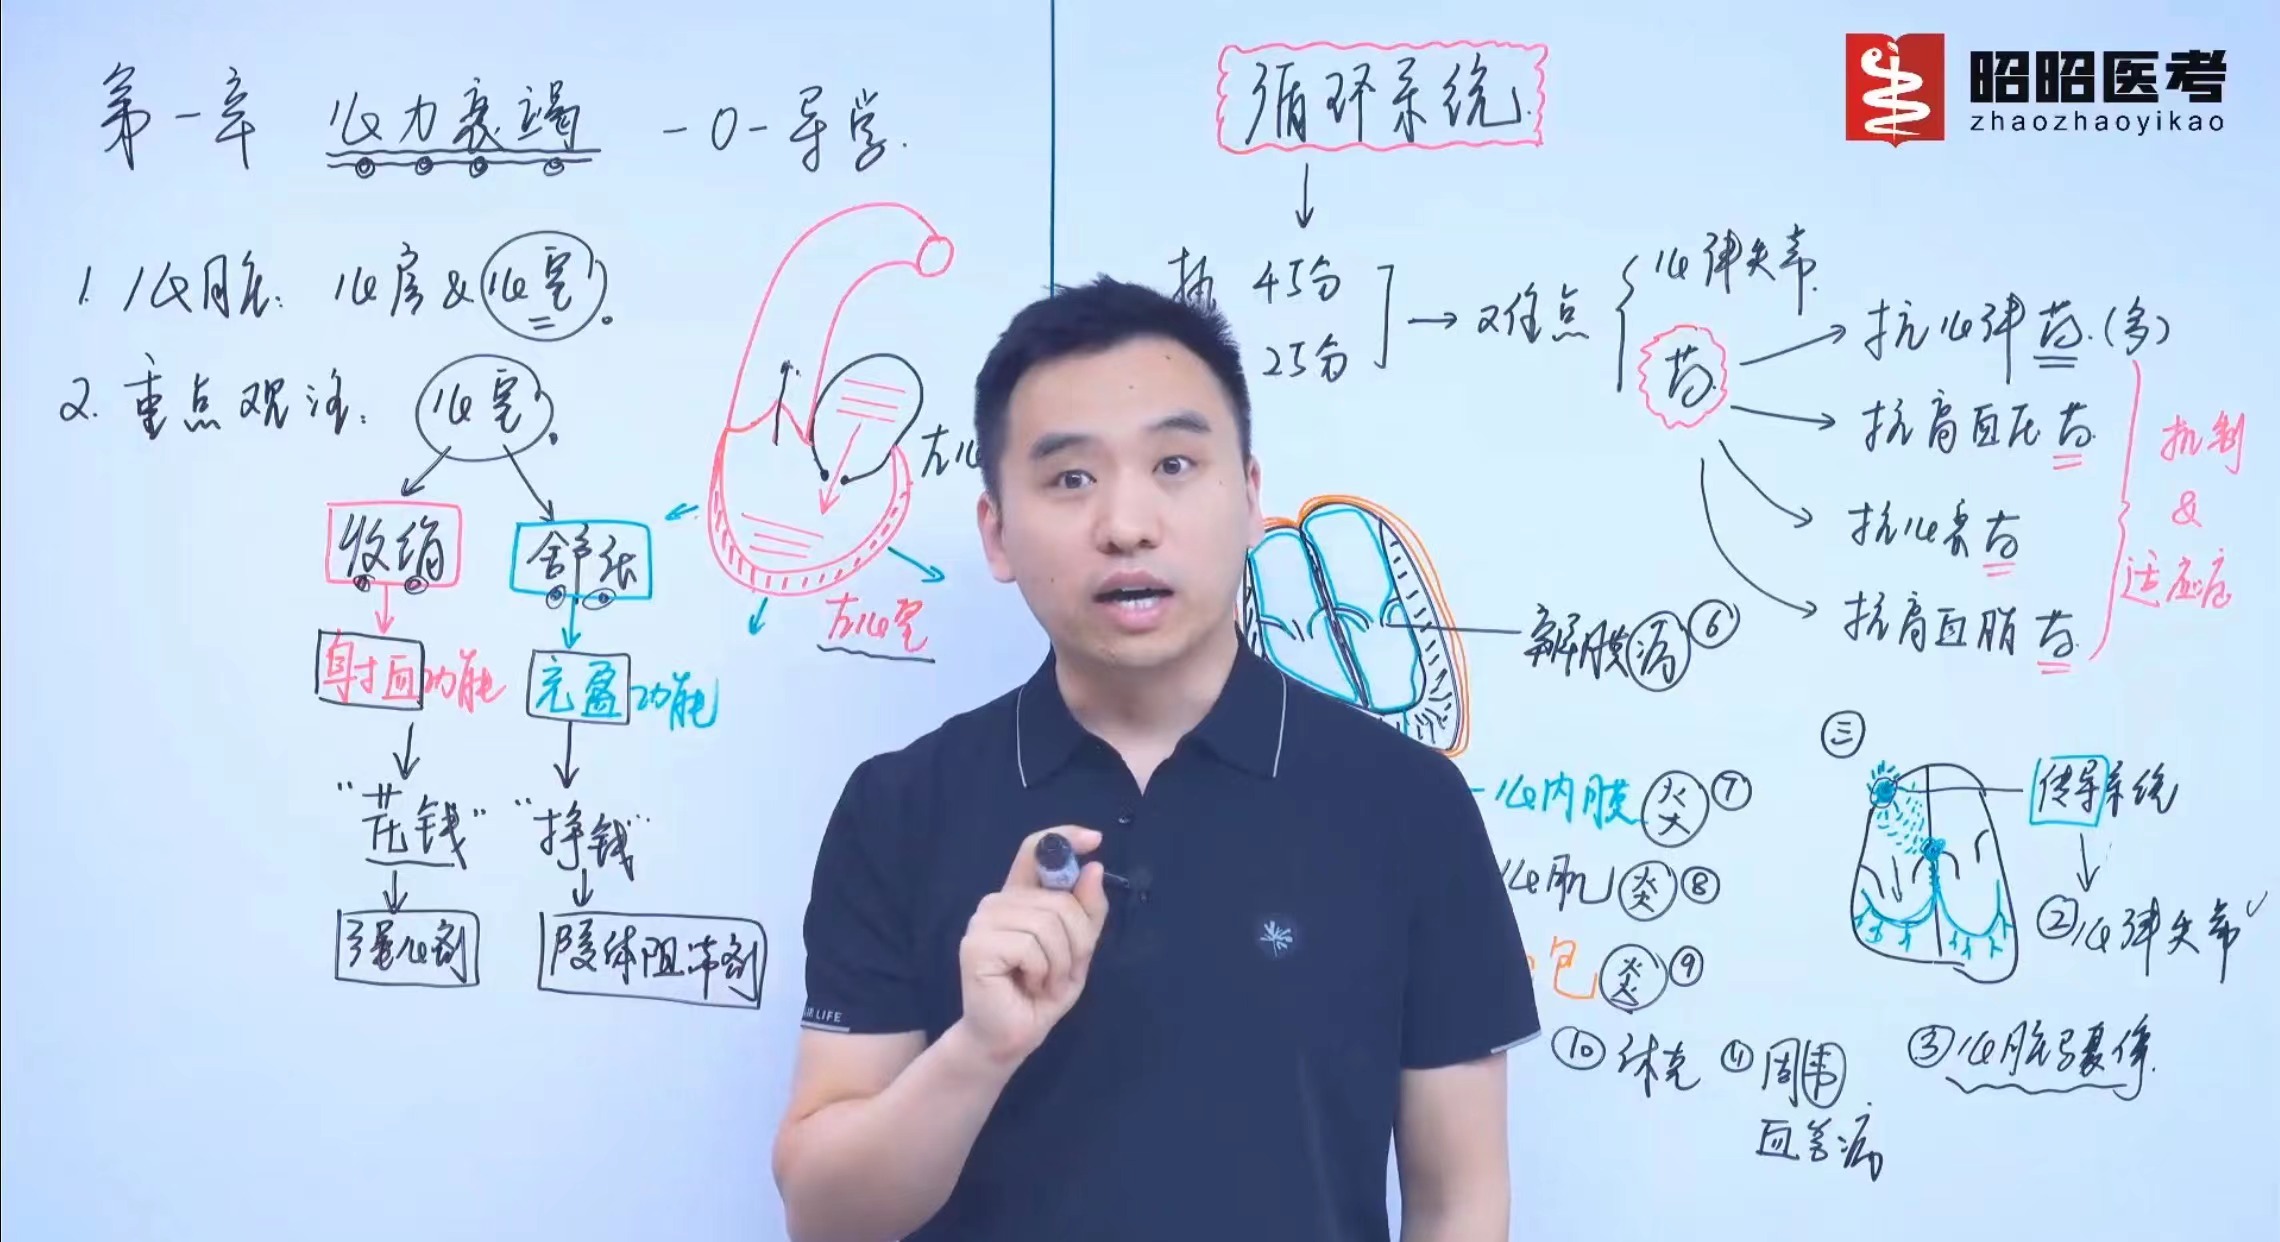 第一章 心力衰竭 -0-导学.
1. 心脏: 心房&心室.
2. 重点观注: 心室.
收缩 舒张
射血功能 充盈功能
"花钱" "挣钱"
强心剂 β受体阻滞剂
左心室
循环系统
执 45分
25分
难点
心律失常
药
抗心律药.(多)
抗高血压药
抗心衰药
抗高血脂药
机制
&
适应症
瓣膜病 ⑥
心内膜炎 ⑦
心肌炎 ⑧
包炎 ⑨
⑩休克 ⑪周围
血管病
㊂
传导系统
②心律失常
③心脏骤停.
昭昭医考
zhaozhaoyikao
LIFE